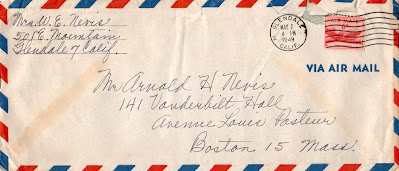 Mrs. W. E. Nevis
501 E. Mountain
Glendale 7 Calif.
GLENDALE
MAY 2
4 PM
1949
CALIF.
VIA AIR MAIL
Mr Arnold H Nevis
141 Vanderbilt Hall
Avenue Louis Pasteur
Boston 15 Mass.